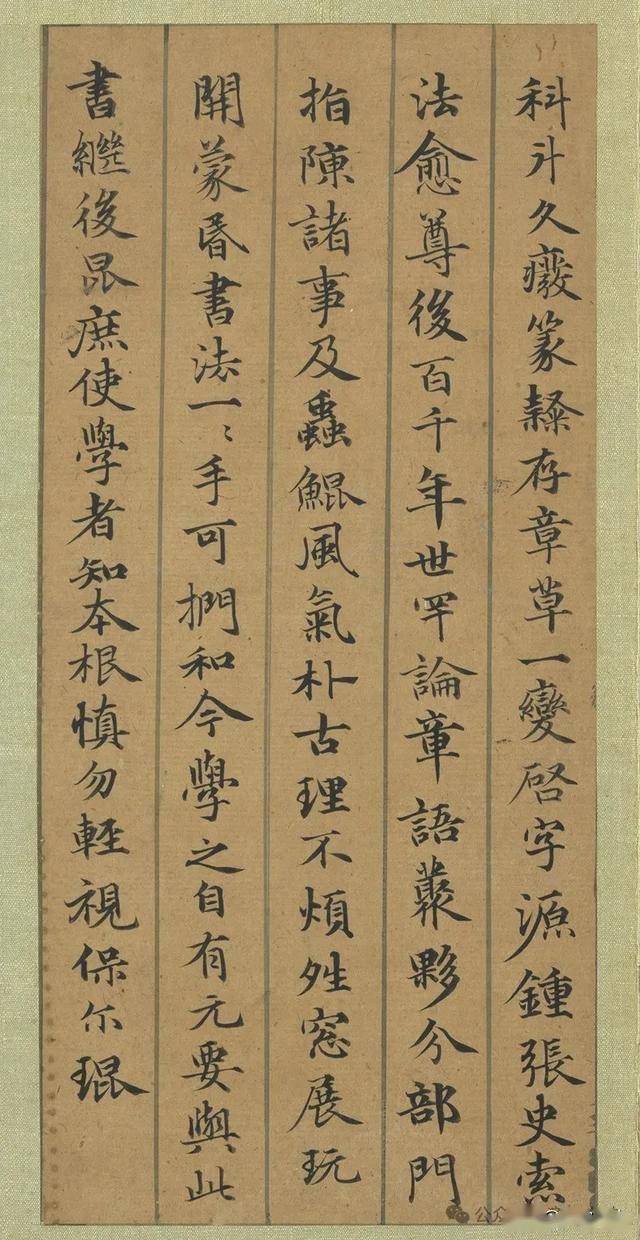 科斗久癈篆隸存章草一變啓字源鍾張史索
法愈尊後百千年世罕論章語叢夥分部門
指陳諸事及蟲鯤風氣朴古理不煩夝窓展玩
開蒙昏書法一〻手可捫和今學之自有元要與此
書繼後昆庶使學者知本根慎勿輕視保尔琨
公众